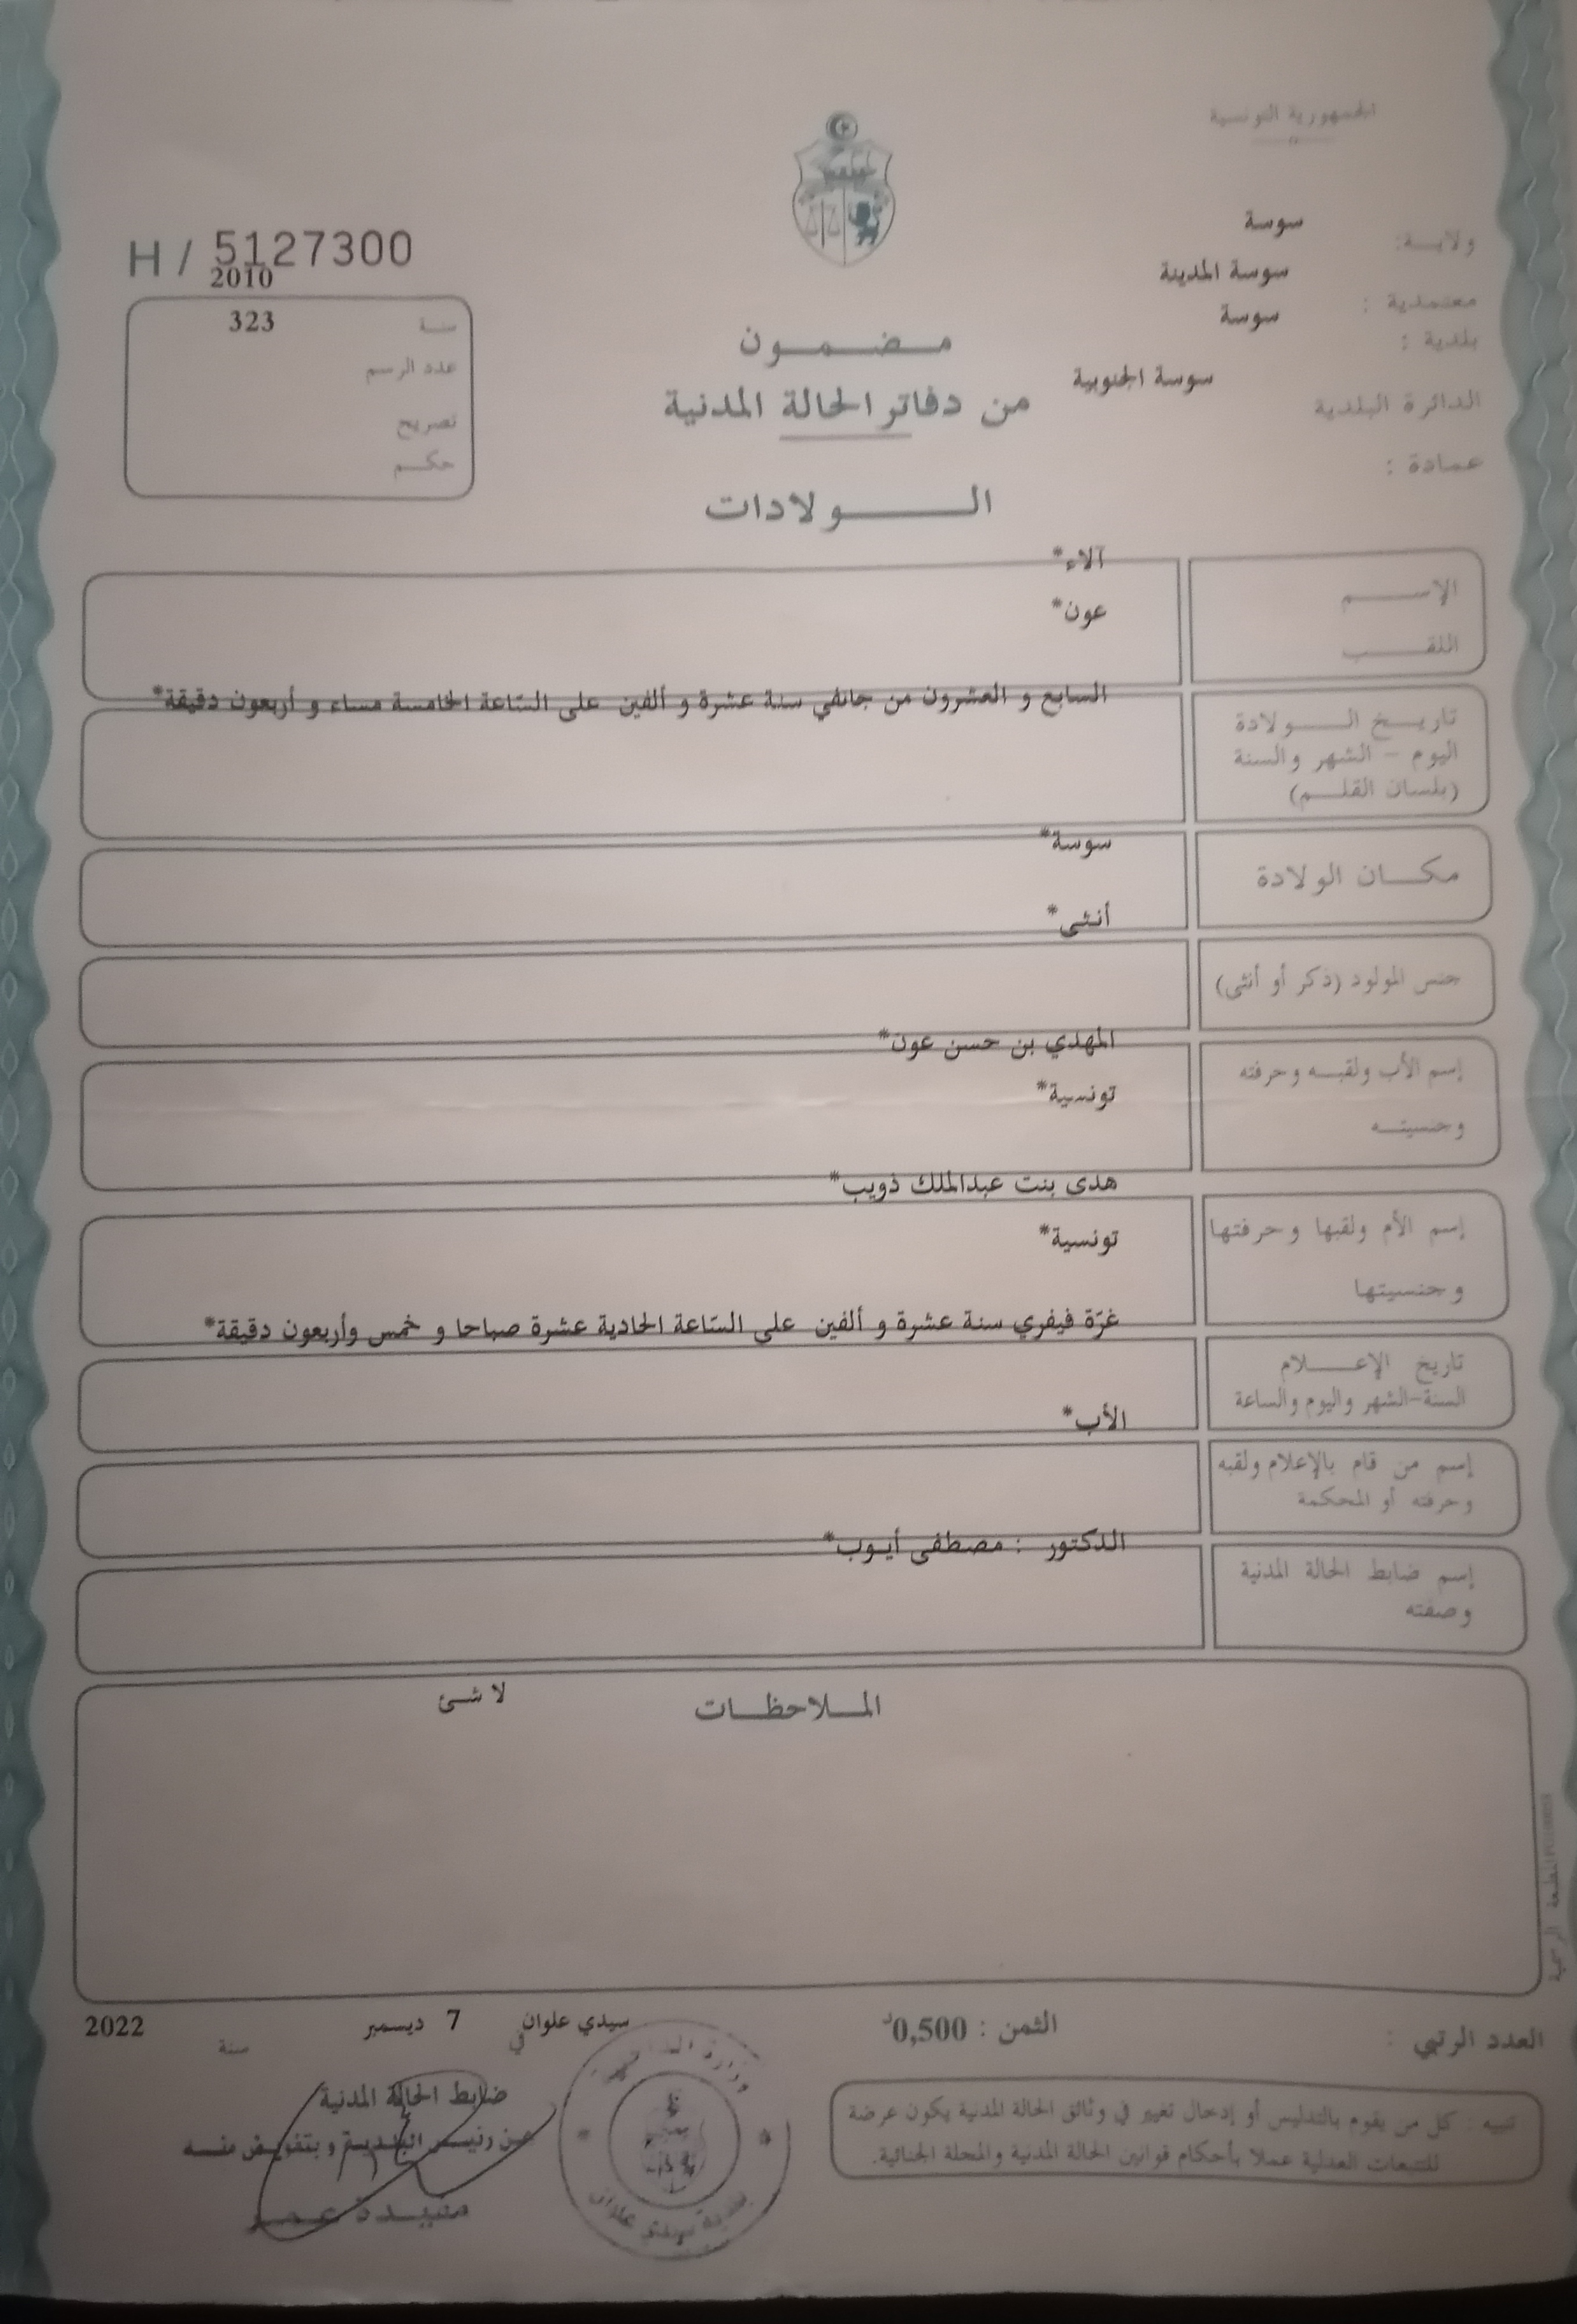 الجمهورية التونسية
ولايـة: سوسة
معتمدية : سوسة المدينة
بلدية : سوسة
الدائرة البلدية سوسة الجنوبية
عمادة :
H / 5127300
2010
سنة 323
عدد الرسم
تصريح
حكم
مضمون
من دفاتر الحالة المدنية
الولادات
الإسم آلاء*
اللقب عون*
تاريخ الولادة
اليوم - الشهر والسنة
(بلسان القلم)
السابع و العشرون من جانفي سنة عشرة و ألفين على السّاعة الخامسة مساء و أربعون دقيقة*
مكان الولادة سوسة*
جنس المولود (ذكر أو أنثى) أنثى*
إسم الأب ولقبه وحرفته المهدي بن حسن عون*
وجنسيته تونسية*
إسم الأم ولقبها وحرفتها هدى بنت عبدالملك ذويب*
وجنسيتها تونسية*
تاريخ الإعلام
السنة-الشهر واليوم والساعة
غرّة فيفري سنة عشرة و ألفين على السّاعة الحادية عشرة صباحا و خمس وأربعون دقيقة*
إسم من قام بالإعلام ولقبه
وحرفته أو المحكمة
الأب*
إسم ضابط الحالة المدنية
وصفته
الدكتور : مصطفى أيوب*
الملاحظات لا شئ
المطبعة الرسمية
العدد الرتبي :
الثمن : 0,500د
سيدي علوان في 7 ديسمبر سنة 2022
تنبيه : كل من يقوم بالتدليس أو إدخال تغيير في وثائق الحالة المدنية يكون عرضة
للتتبعات العدلية عملا بأحكام قوانين الحالة المدنية والمجلة الجنائية.
ضابط الحالة المدنية
عن رئيس البلدية و بتفويض منه
بلدية سيدي علوان